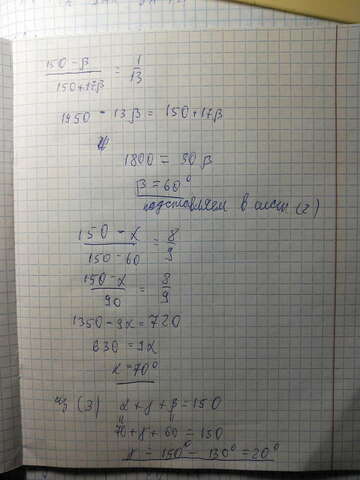 150 - β / 150 + 17β = 1 / 13
1950 - 13β = 150 + 17β
1800 = 30β
β = 60°
подставляем в (2)
150 - α / 150 - 60 = 8 / 9
150 - α / 90 = 8 / 9
1350 - 9α = 720
630 = 9α
α = 70°
из (3) α + γ + β = 150
70 + γ + 60 = 150
γ = 150° - 130° = 20°